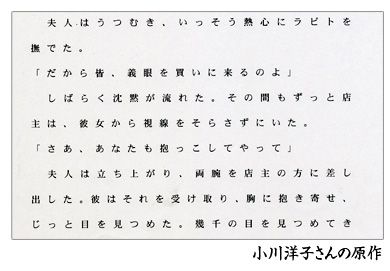 夫人はうつむき、いっそう熱心にラビトを
撫でた。
「だから皆、義眼を買いに来るのよ」
しばらく沈黙が流れた。その間もずっと店
主は、彼女から視線をそらさずにいた。
「さあ、あなたも抱っこしてやって」
夫人は立ち上がり、両腕を店主の方に差し
出した。彼はそれを受け取り、胸に抱き寄せ、
じっと目を見つめた。幾千の目を見つめてき
小川洋子さんの原作